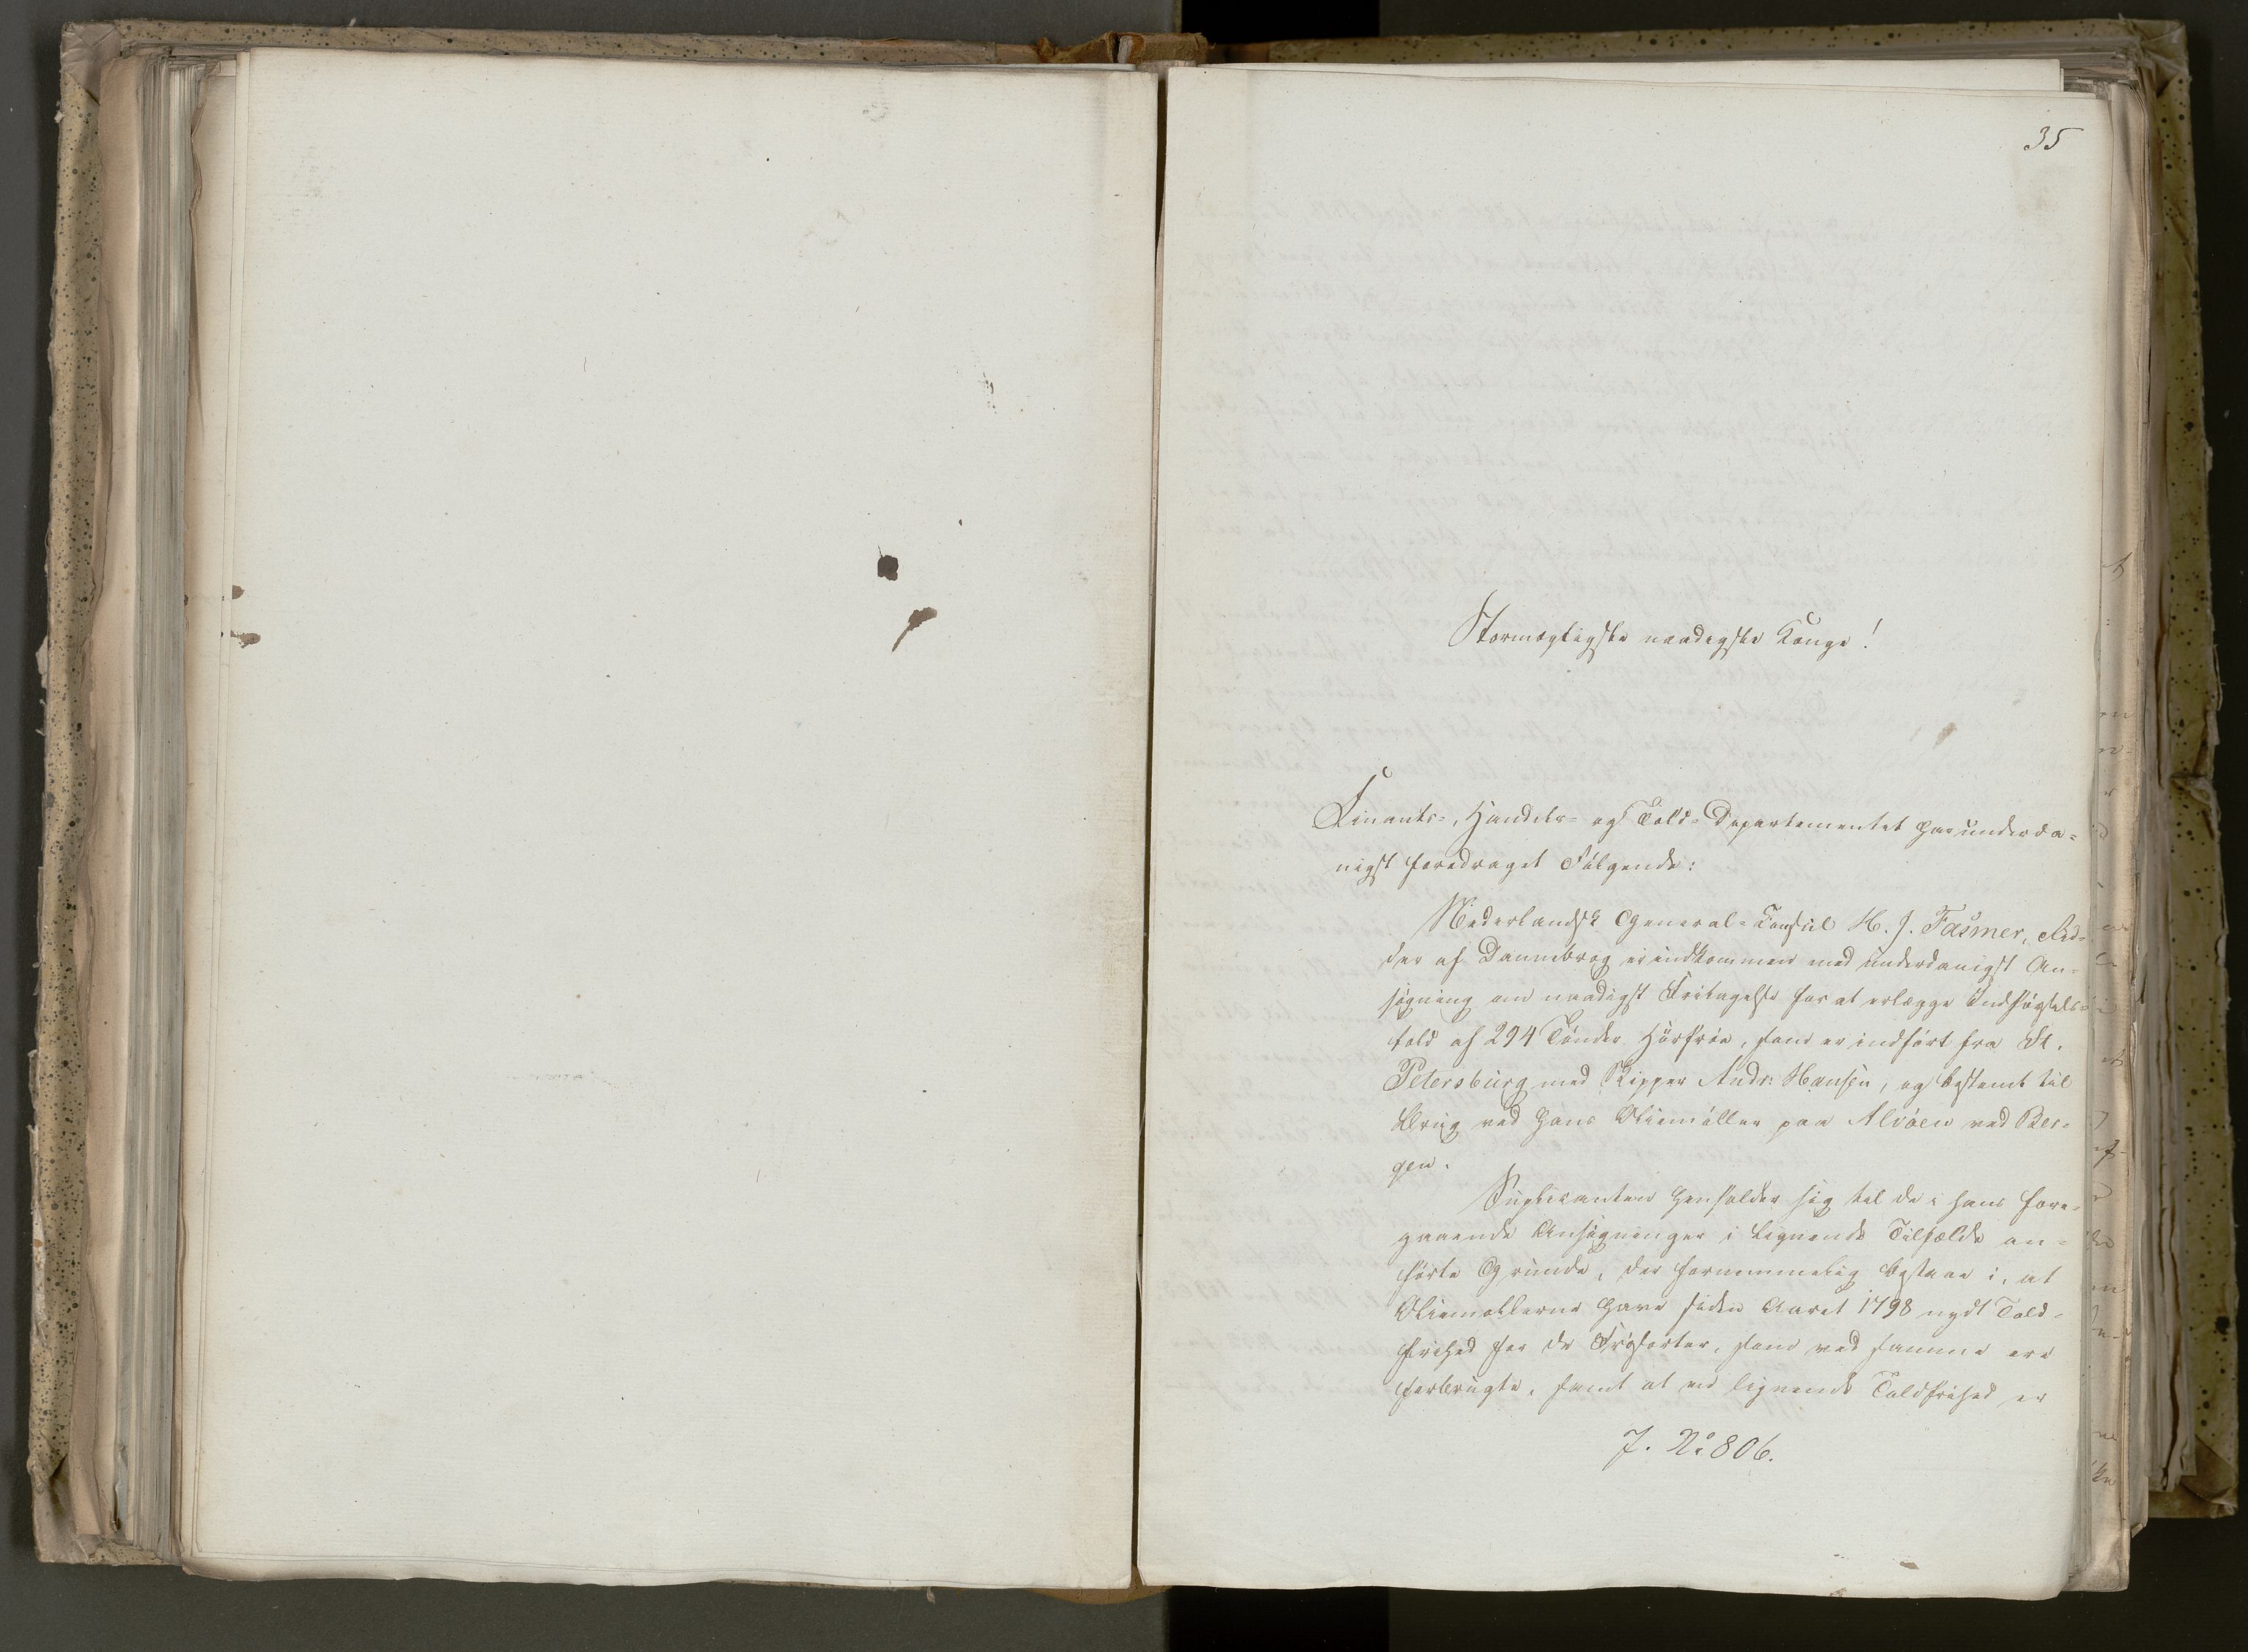 35
Stormægtigste naadigste Konge!
Finants-, Handels- og Told-Departementet har underda-
nigst foredraget Følgende:
Nederlandsk General-Consul H. J. Fasmer, Rid-
der af Dannebrog er indkommen med underdanigst An-
søgning om naadigst Fritagelse for at erlægge Indførsels-
told af 294 Tønder Hørfrøe, som er indført fra St.
Petersburg med Skipper Andr: Hansen, og bestemt til
Brug ved hans Oliemøller paa Alvøen ved Ber-
gen.
Suplicanten henholder sig til de i hans fore-
gaaende Ansøgninger i lignende Tilfælde an-
førte Grunde, der fornemmelig bestaae i, at
Oliemøllerne have siden Aaret 1798 nydt Told-
frihed for de Frøsorter, som ved samme ere
forbrugte, samt at en lignende Toldfrihed er
J. No 806.